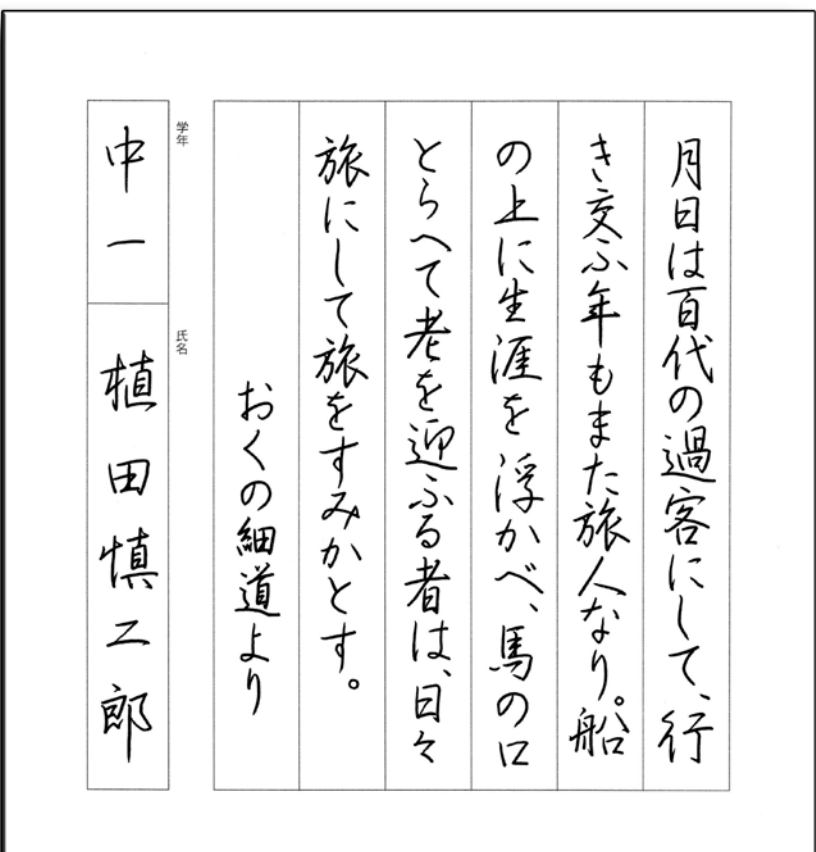 月日は百代の過客にして、行
き交ふ年もまた旅人なり。船
の上に生涯を浮かべ、馬の口
とらへて老を迎ふる者は、日々
旅にして旅をすみかとす。
おくの細道より
学年
中一
氏名
植田慎二郎